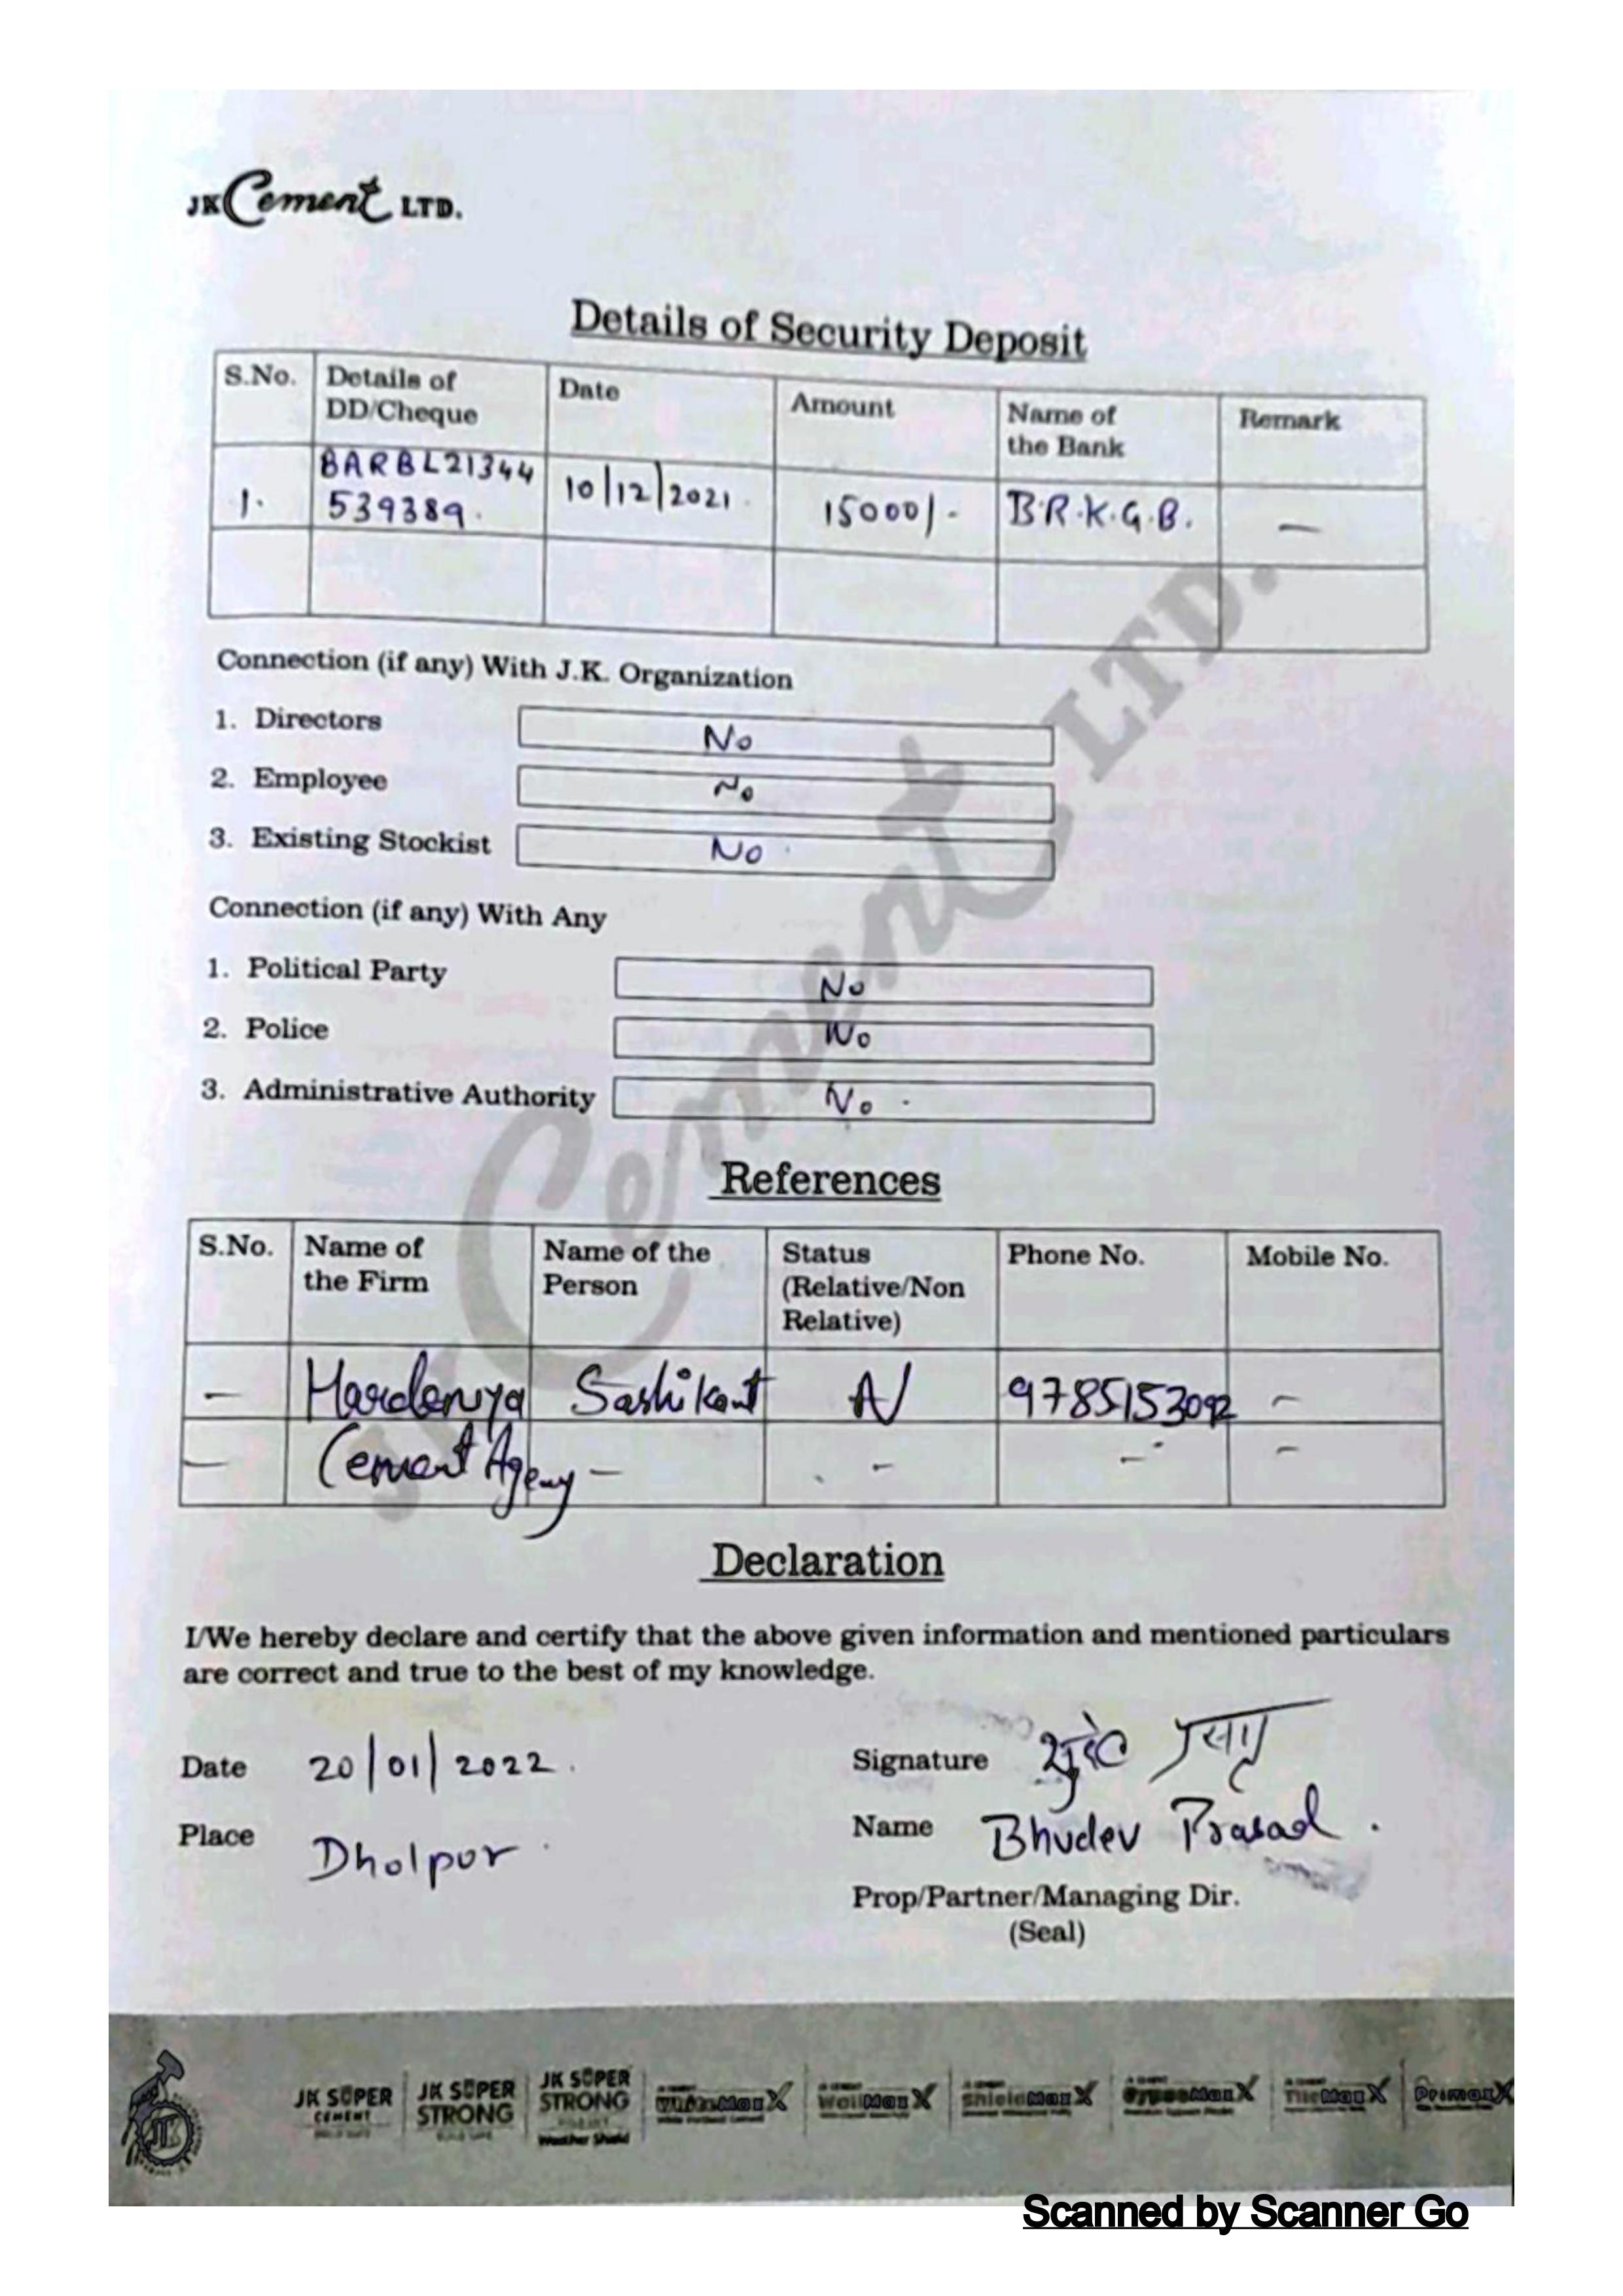 JK Cement LTD.
Details of Security Deposit
S.No. Details of DD/Cheque Date Amount Name of the Bank Remark
1. BARBL21344 539389. 10/12/2021. 15000/- B.R.K.G.B. —
Connection (if any) With J.K. Organization
1. Directors No
2. Employee No
3. Existing Stockist No
Connection (if any) With Any
1. Political Party No
2. Police No
3. Administrative Authority No
References
S.No. Name of the Firm Name of the Person Status (Relative/Non Relative) Phone No. Mobile No.
— Sashikant N 9785153092 —
— Cement Agency — — — —
Declaration
I/We hereby declare and certify that the above given information and mentioned particulars
are correct and true to the best of my knowledge.
Date 20/01/2022.
Signature भुदेव प्रसाद
Place Dholpur
Name Bhudev Prasad.
Prop/Partner/Managing Dir.
(Seal)
JK SUPER CEMENT JK SUPER STRONG JK SUPER STRONG Weather Shield WallMaxX ShieldMaxX GypsoMaxX TileMaxX PrimaxX
Scanned by Scanner Go